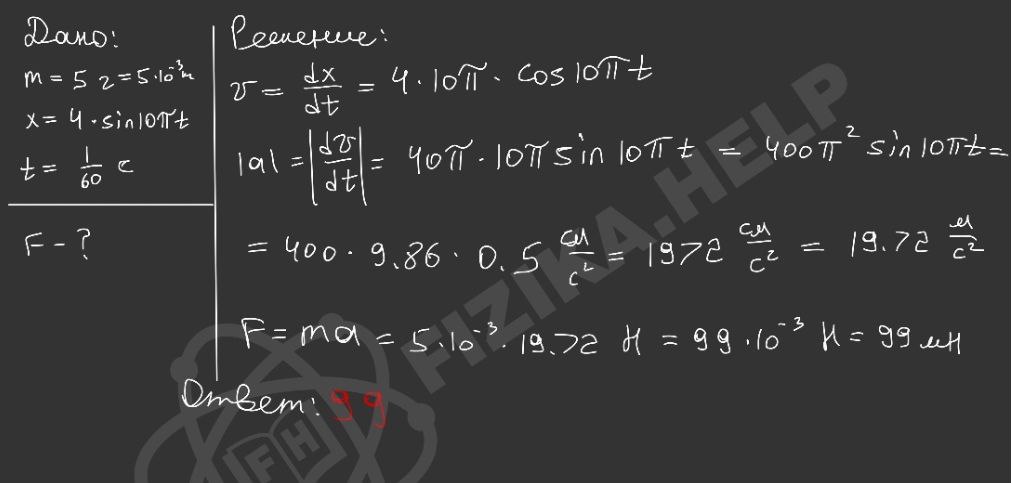 Дано:
m = 5 г = 5·10⁻³ кг
x = 4·sin10πt
t = 1/60 с
F - ?
Решение:
v = dx/dt = 4·10π·cos10πt
|a| = |dv/dt| = 40π·10πsin10πt = 400π² sin10πt =
= 400·9.86·0.5 см/с² = 1972 см/с² = 19.72 м/с²
F = ma = 5·10⁻³·19.72 Н = 99·10⁻³ Н = 99 мН
Ответ: 99
FIZIKA.HELP
FH